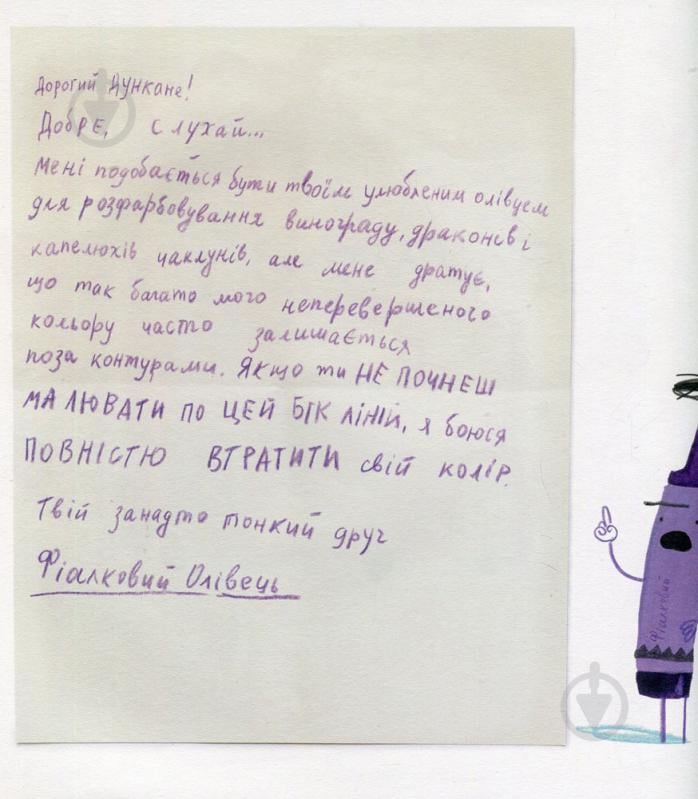 Дорогий Дункане!
Добре, слухай...
Мені подобається бути твоїм улюбленим олівцем
для розфарбовування винограду, драконів і
капелюхів чаклунів, але мене дратує,
що так багато мого неперевершеного
кольору часто залишається
поза контурами. Якщо ти НЕ ПОЧНЕШ
МАЛЮВАТИ ПО ЦЕЙ БІК ЛІНІЙ, я боюся
ПОВНІСТЮ ВТРАТИТИ свій колір.
Твій занадто тонкий друг
Фіалковий Олівець
Фіалковий